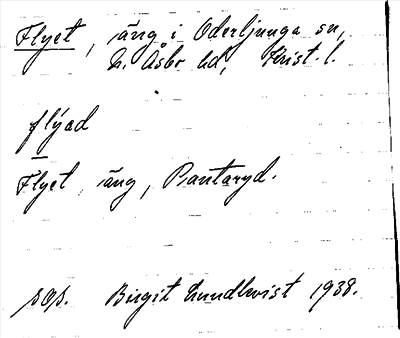 Flyet, äng i Oderljunga sn,
N. Åsbo hd, Krist. l.
flýad
Flyet, äng, Bantaryd.
pop. Birgit Lundkvist 1938.